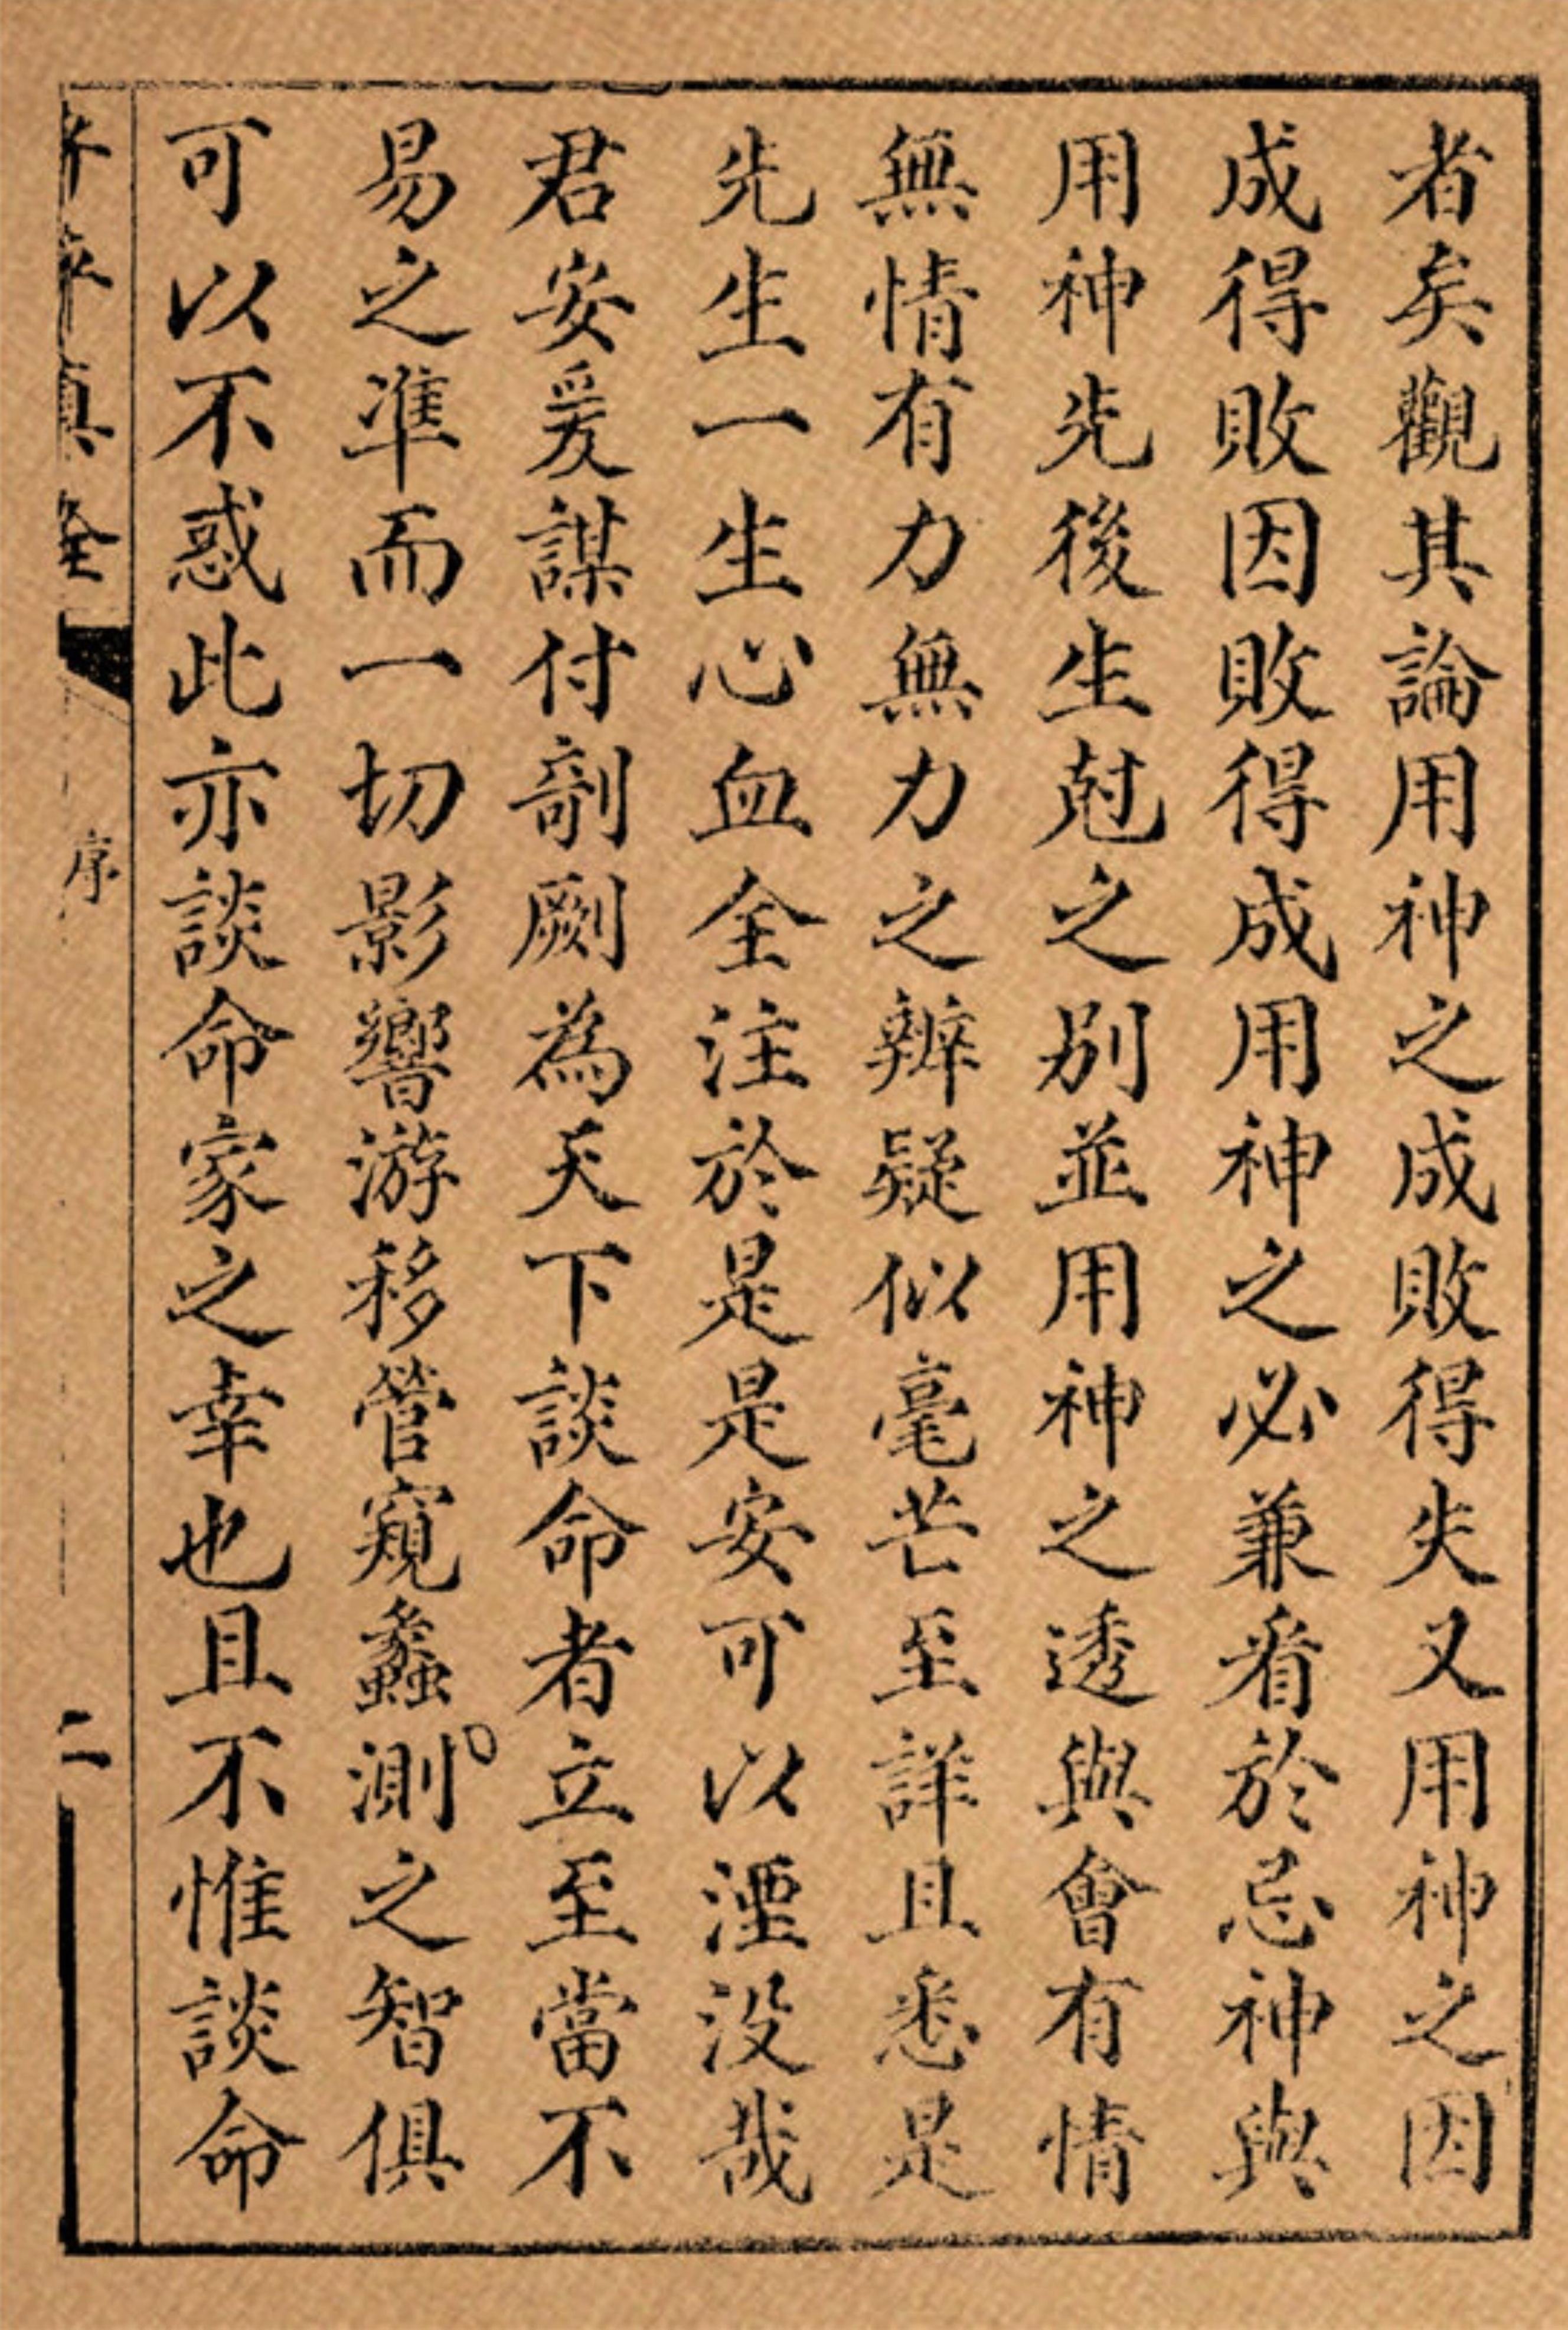 者矣觀其論用神之成敗得失又用神之因
成得敗因敗得成用神之必兼看於忌神與
用神先後生尅之別並用神之透與會有情
無情有力無力之辨疑似毫芒至詳且悉是
先生一生心血全注於是是安可以湮没哉
君安爰謀付剞劂為天下談命者立至當不
易之準而一切影響游移管窺蠡測之智俱
可以不惑此亦談命家之幸也且不惟談命
子平真全
序
二